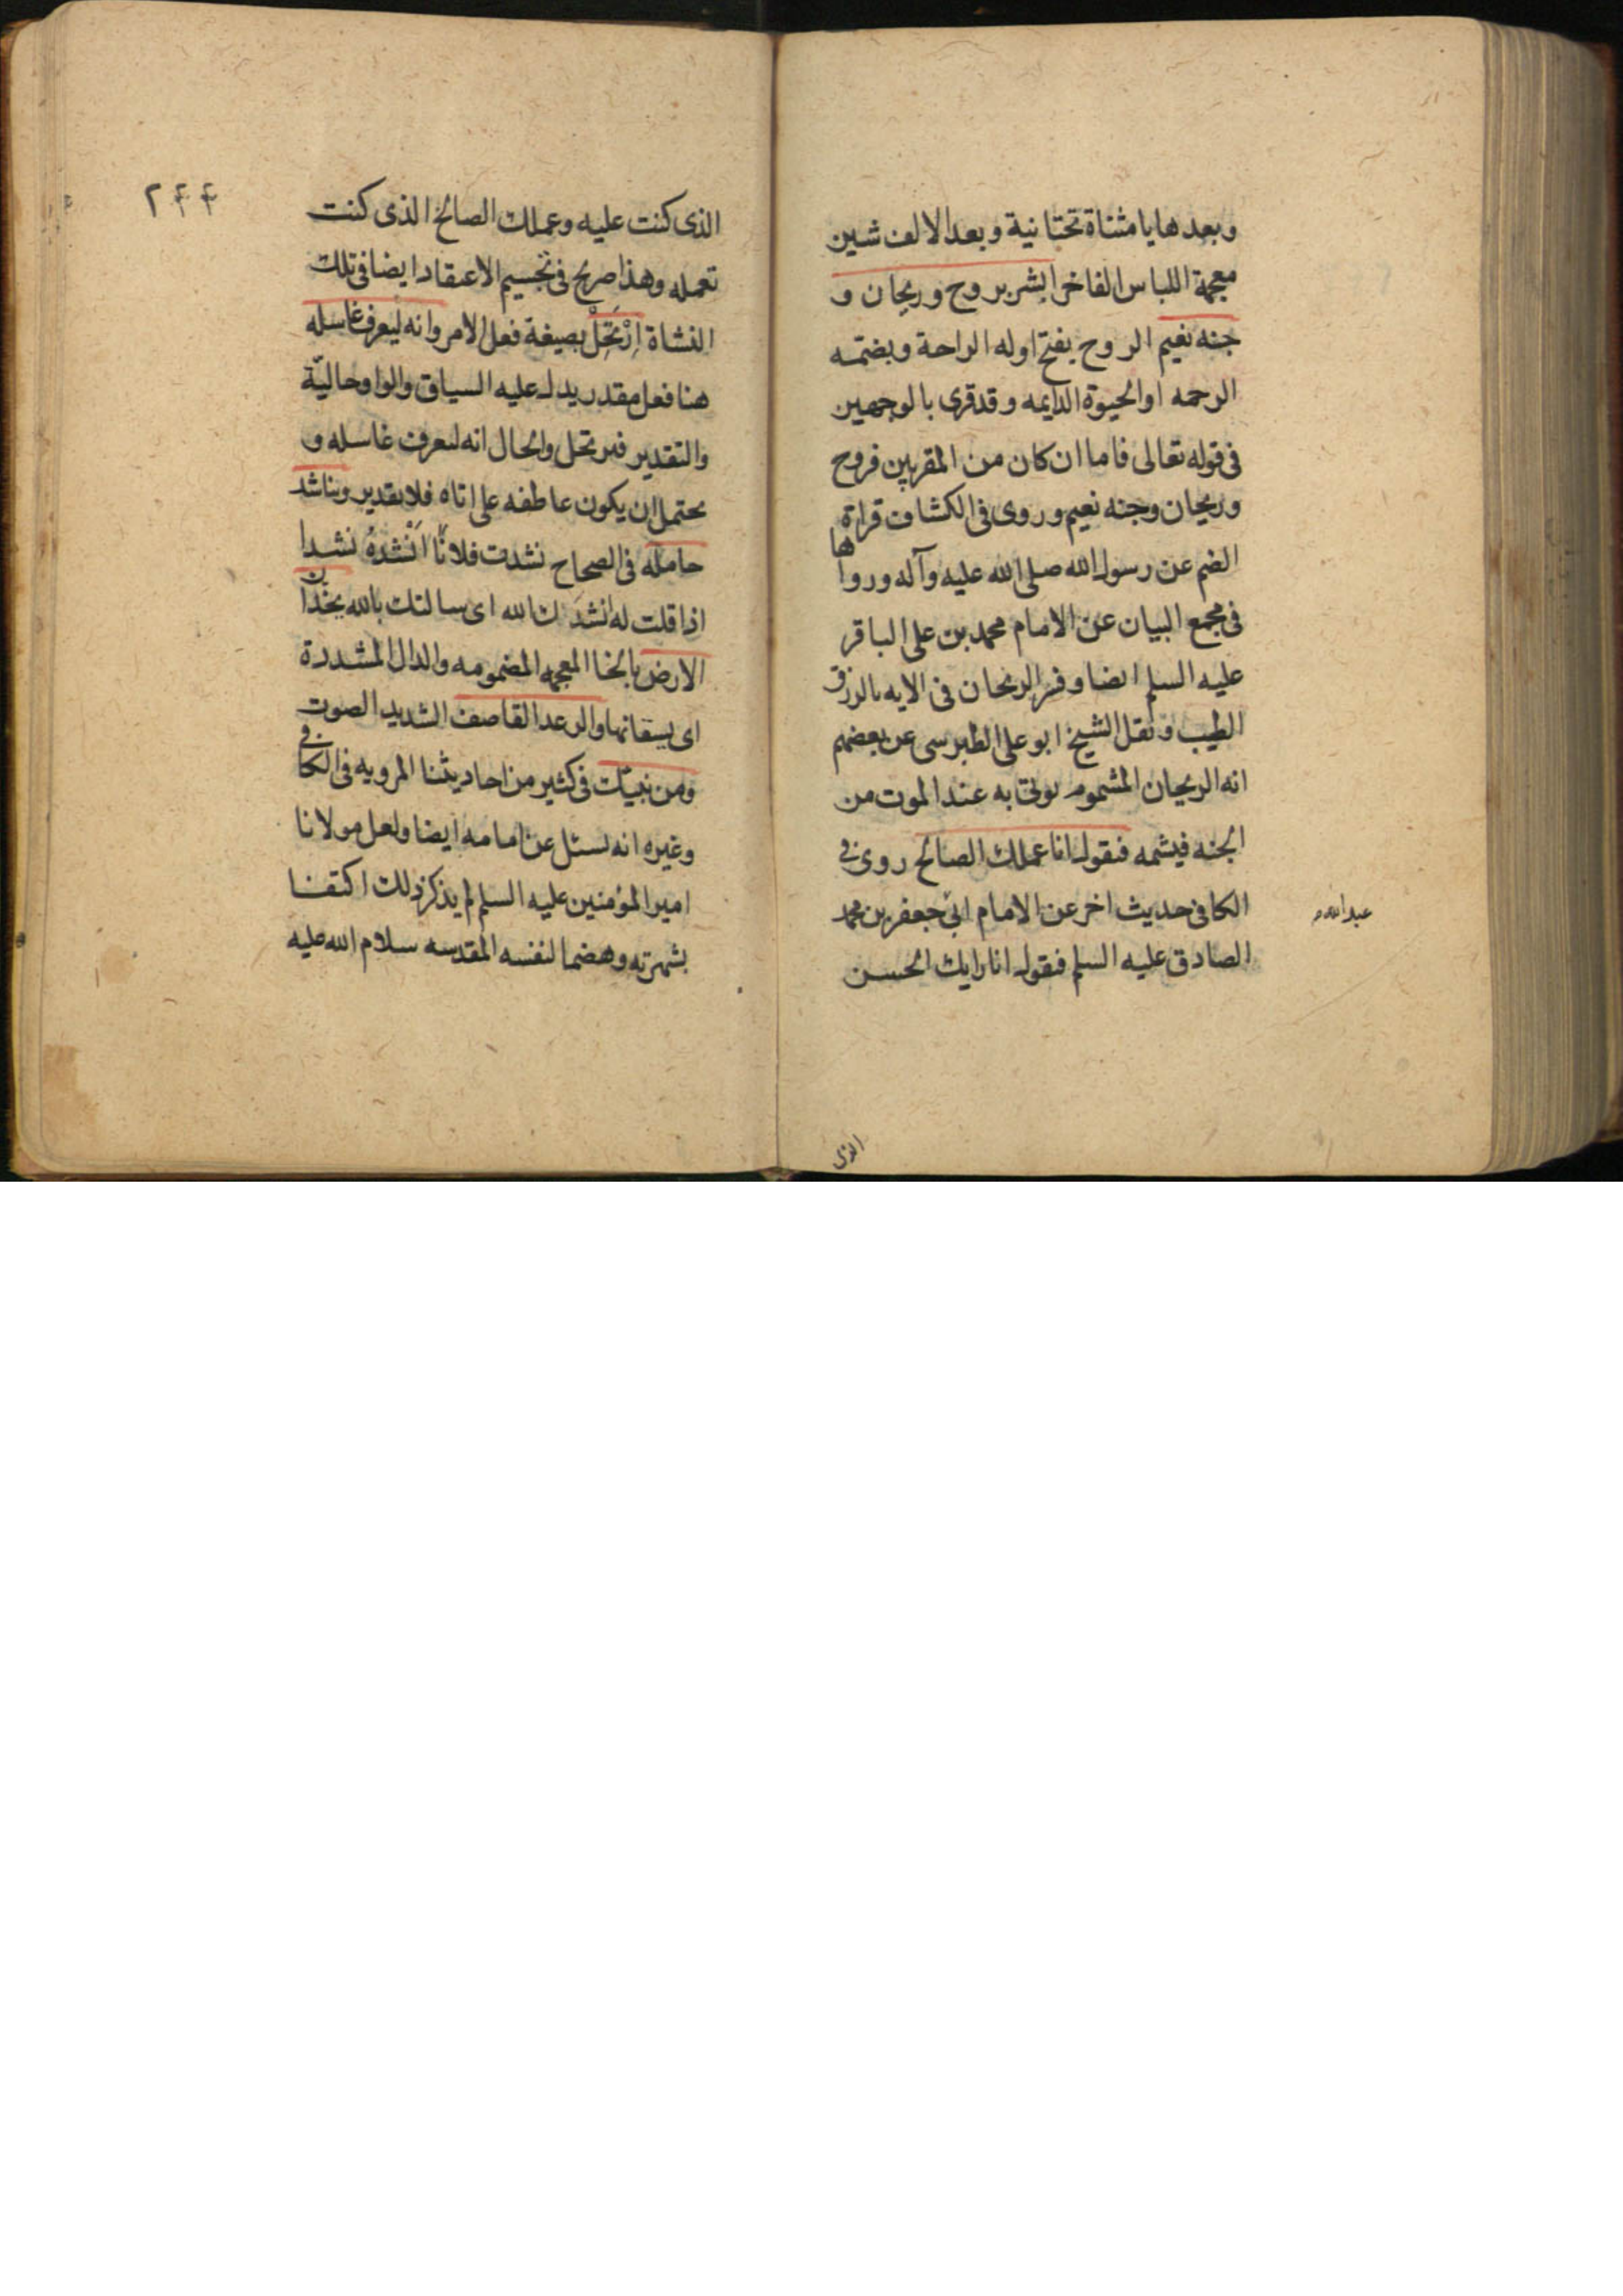 وبعدها يا مثناة تحتانية وبعد الالف شين
معجمة اللباس الفاخر ابشر بروح وريحان و
جنه نعيم الروح بفتح اوله الراحة وبضمه
الرحمه او الحيوة الدايمه وقد قرى بالوجهين
فى قوله تعالى فاما ان كان من المقربين فروح
وريحان وجنه نعيم وروى فى الكشاف قراة
الضم عن رسول الله صلى الله عليه وآله ورواها
فى مجمع البيان عن الامام محمد بن على الباقر
عليه السلم ايضا وفسر الريحان فى الايه بالرزق
الطيب ونقل الشيخ ابو على الطبرسى عن بعضهم
انه الريحان المشموم يوتى به عند الموت من
الجنه فيشمه فيقول انا عملك الصالح روى فى
الكافى حديث اخر عن الامام ابى جعفر بن محمد
عبدالله
الصادق عليه السلم فيقول انا رايك الحسن
الذى
٢٤٤
الذى كنت عليه وعملك الصالح الذى كنت
تعمله وهذا صريح فى تجسيم الاعتقاد ايضا فى تلك
النشاة اِرْتَحِلْ بصيغة فعل الامر وانه ليعرف غاسله
هنا فعل مقدر يدل عليه السياق والواو حاليّة
والتقدير فيرتحل والحال انه ليعرف غاسله و
يحتمل ان يكون عاطفه على اتاه فلا تقدير ويناشد
حامله فى الصحاح نشدت فلانًا اَنْشُدهُ نشدا
اذا قلت له نشدتك الله اى سالتك بالله يخدان
الارض بالخا المعجمه المضمومه والدال المشددة
اى يشقانها والرعد القاصف الشديد الصوت
ومن نبيّك فى كثير من احاديثنا المرويه فى الكافى
وغيره انه يسئل عن امامه ايضا ولعل مولانا
امير المؤمنين عليه السلم لم يذكر ذلك اكتفا
بشهرته وهضما لنفسه المقدسه سلام الله عليه